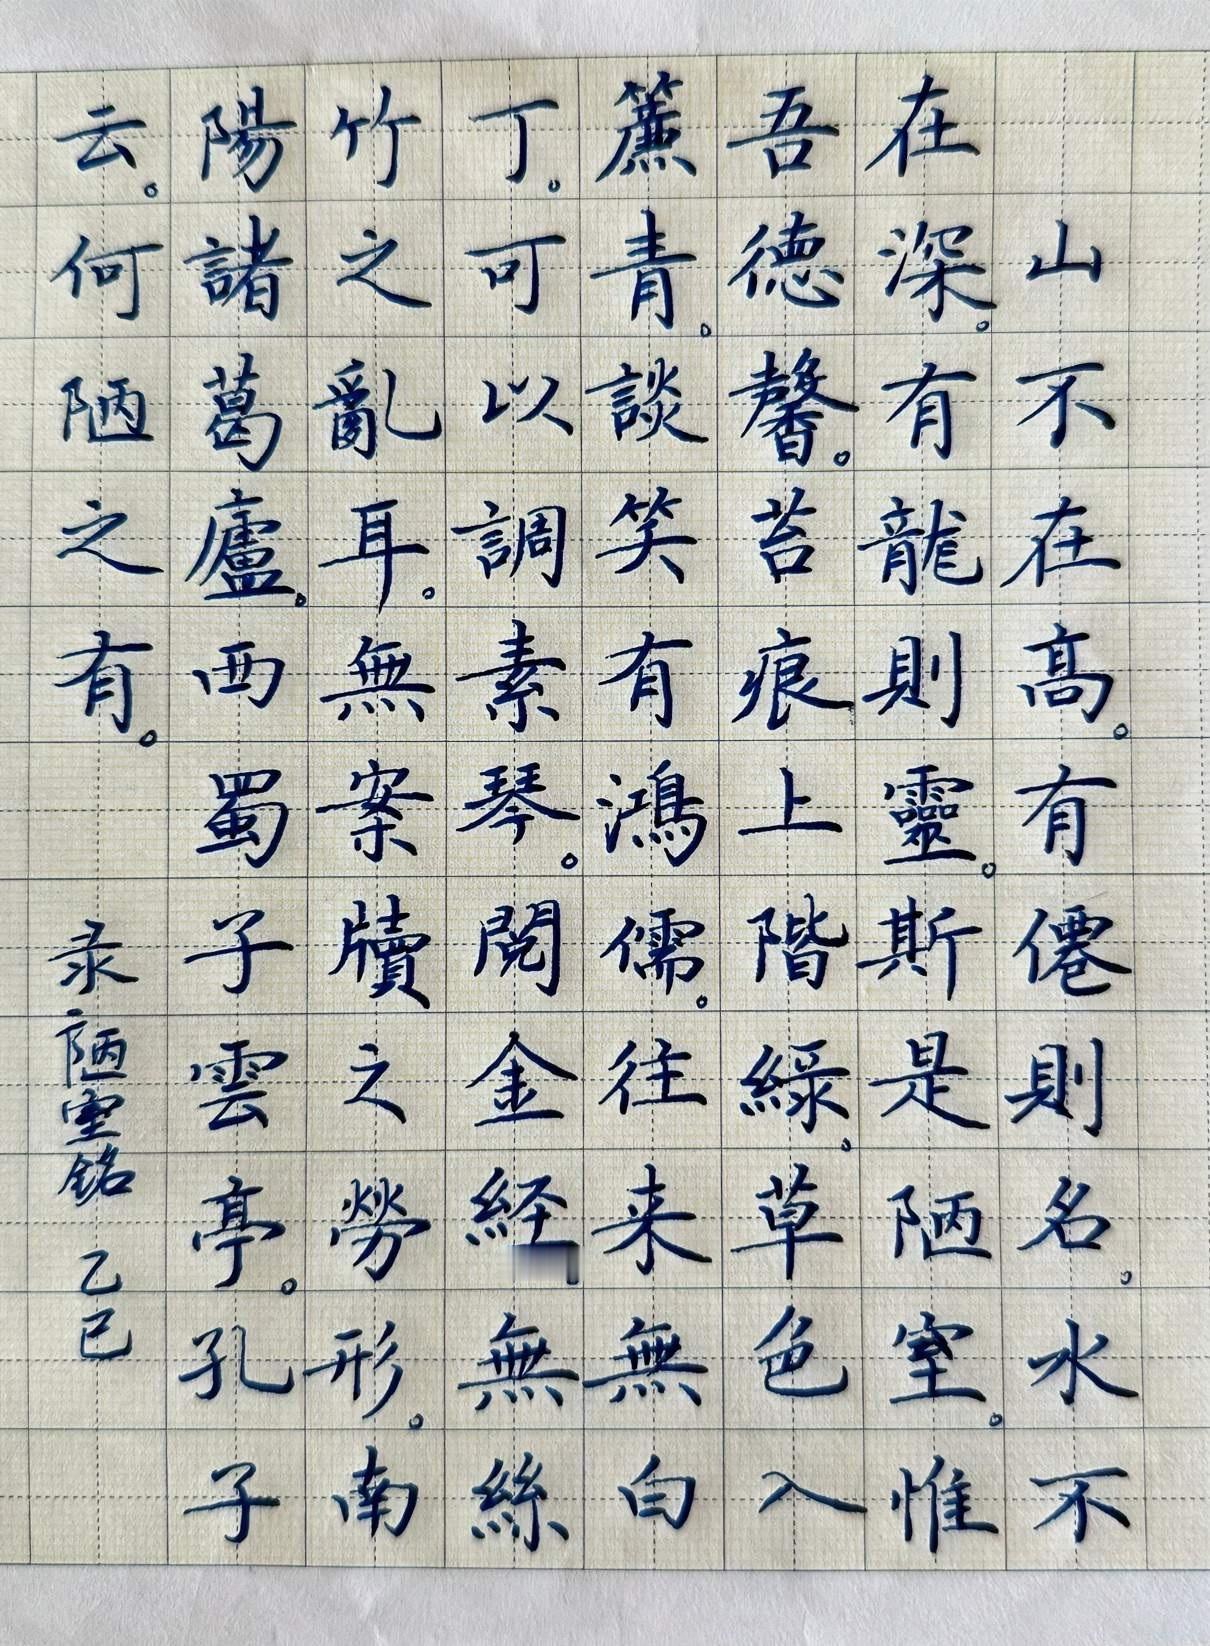 山不在高。有僊則名。水不
在深。有龍則靈。斯是陋室。惟
吾德馨。苔痕上階綠。草色入
簾青。談笑有鴻儒。往来無白
丁。可以調素琴。閱金経無絲
竹之亂耳。無案牘之勞形。南
陽諸葛廬。西蜀子雲亭。孔子
云。何陋之有。
录陋室銘 乙巳